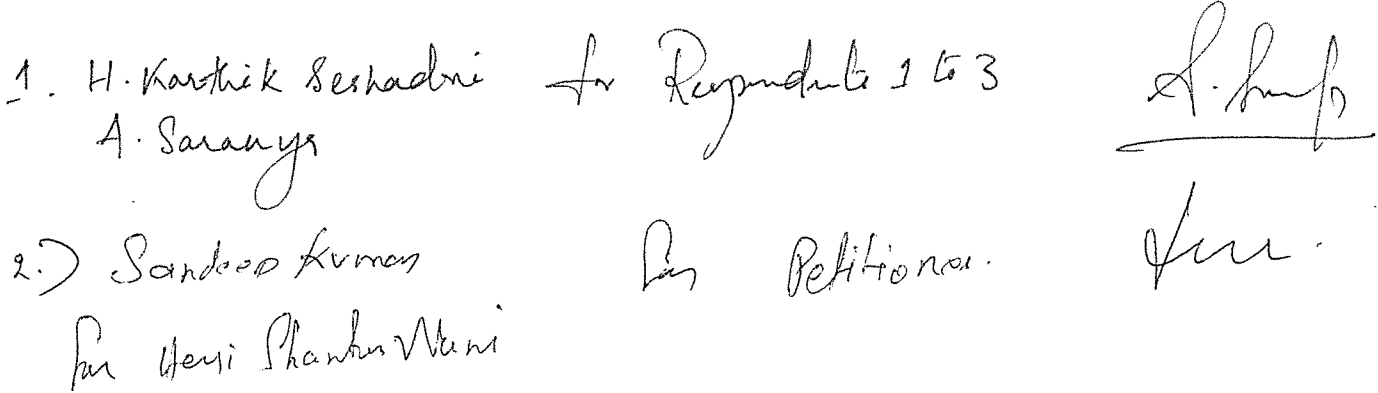 1. H. Karthik Seshadri for Respondents 1 to 3
A. Saranya
2.) Sandeep Kumar for Petitioner.
for Hari Shankar Mani